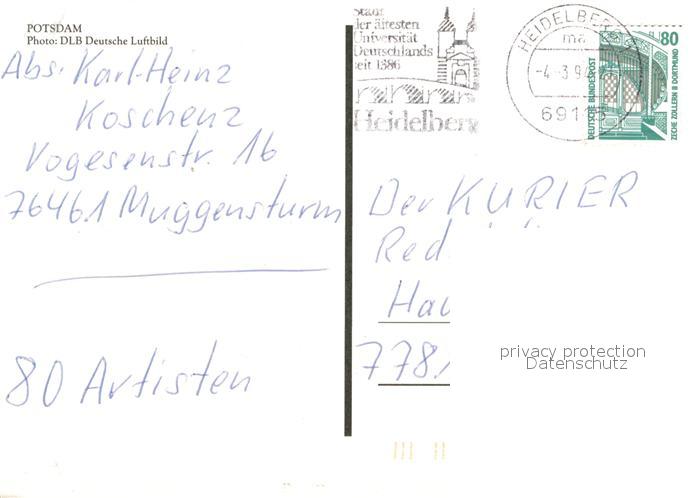 POTSDAM
Photo: DLB Deutsche Luftbild
Abs. Karl-Heinz
Koschenz
Vogesenstr. 16
76461 Muggensturm
80 Artisten
Stadt
der ältesten
Universität
Deutschlands
seit 1386
Heidelberg
HEIDELBERG
ma
-4.-3.94
6911
80
DEUTSCHE BUNDESPOST
ZECHE ZOLLERN II DORTMUND
Der KURIER
Red.
Hau
778
privacy protection
Datenschutz